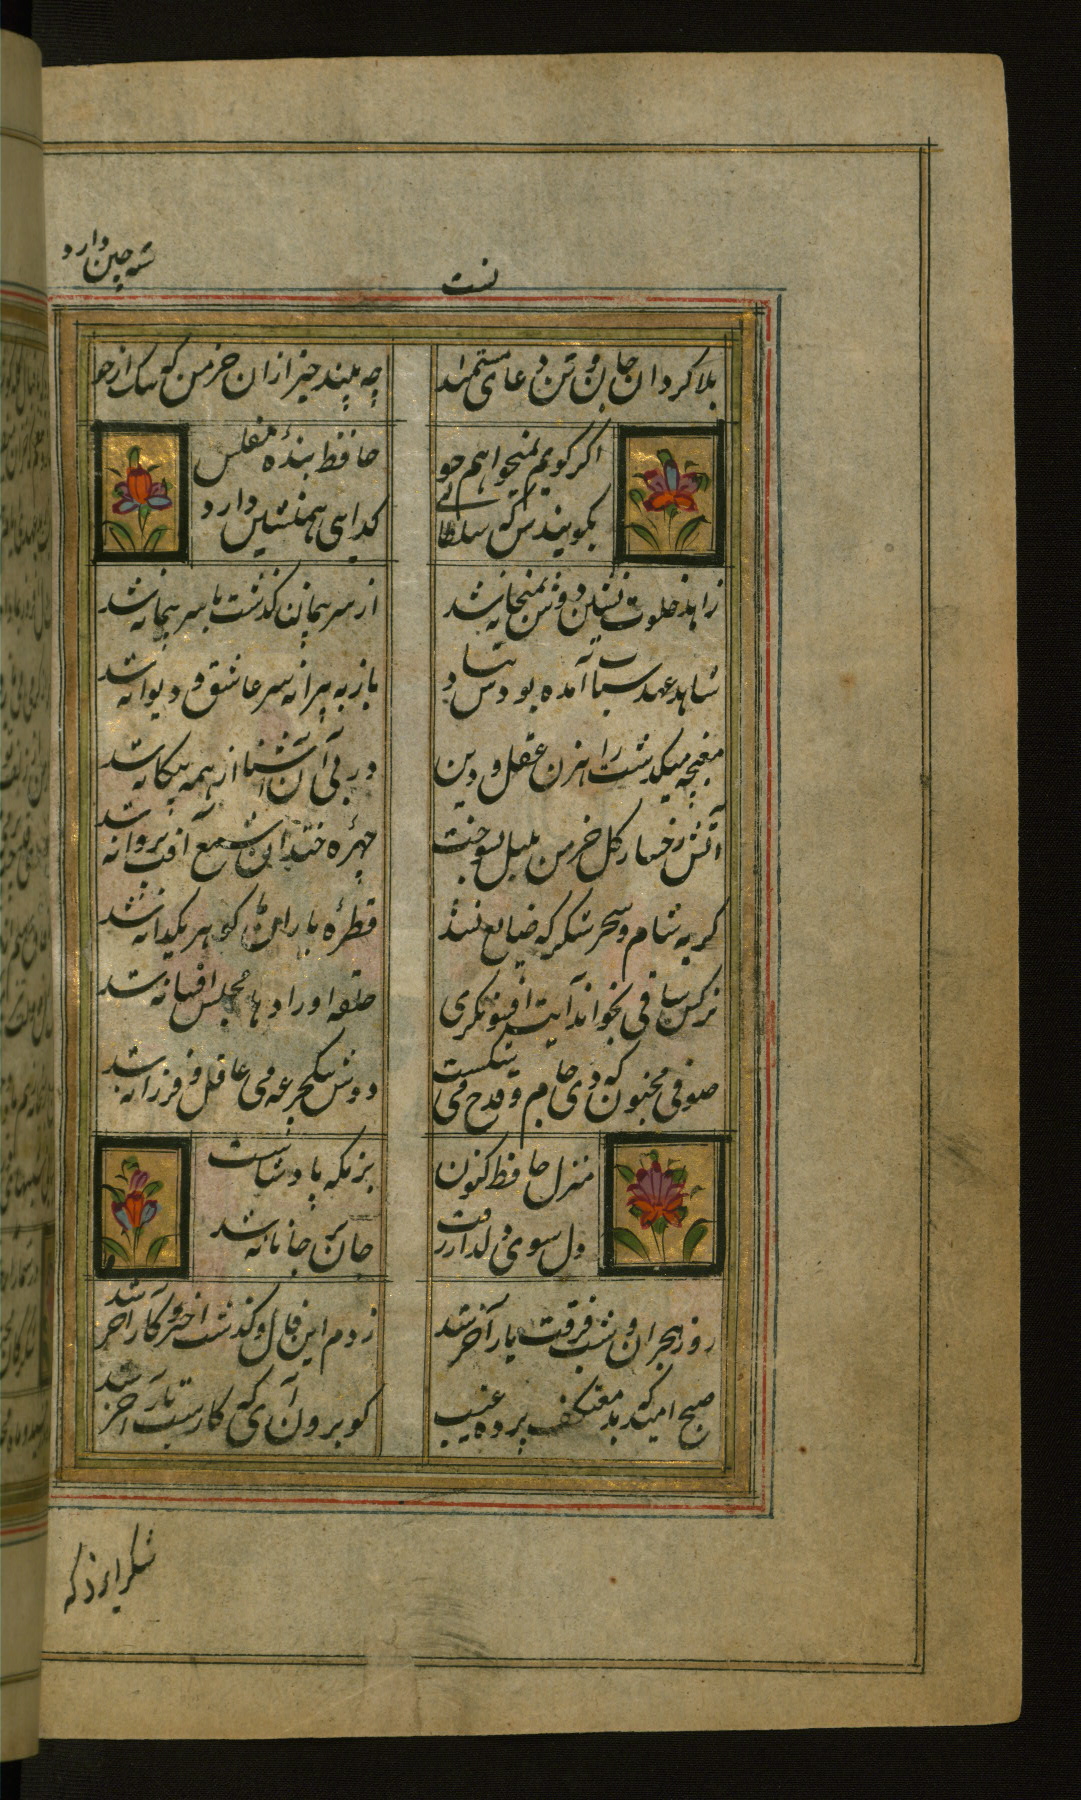 بلا کردان جان و تن دعای مستمندان
نست
چه بیند خیر ازان خرمن که ننک از خو
شه چین دارد
اکر کویم نمیخواهم چو
حافظ بندهٔ مفلس
بکویندش که سلطانی
کدایی همنشین دارد
زاهد خلوت نشین دوش بمیخانه شد
از سر پیمان کذشت با سر پیمانه شد
شاهد عهد شباب آمده بودش
باز به پیرانه سر عاشق و دیوانه شد
مغبچه میکذشت راهزن عقل و دین
در پی آن آشنا از همه بیکانه شد
آتش رخسار کل خرمن بلبل بسوخت
چهرهٔ خندان شمع آفت پروانه شد
کریه شام و سحر شکر که ضایع نشد
قطرهٔ باران کوهر یکدانه شد
نرکس ساقی بخواند آیت افسونکری
حلقه اوراد ها مجلس افسانه شد
صوفی مجنون که دی جام و قدح می شکست
دوش بیکجرعه می عاقل و فرزانه شد
منزل حافظ کنون
بزمکه پادشاست
دل سوی دلدار رفت
جان بر جانانه شد
روز هجران و شب فرقت یار آخر شد
زدم این فال و کذشت اختر و کار آخر شد
صبح امید که بد معتکف پرده غیب
کو برون آی که کار شب تار آخر شد
شکر ایزد که